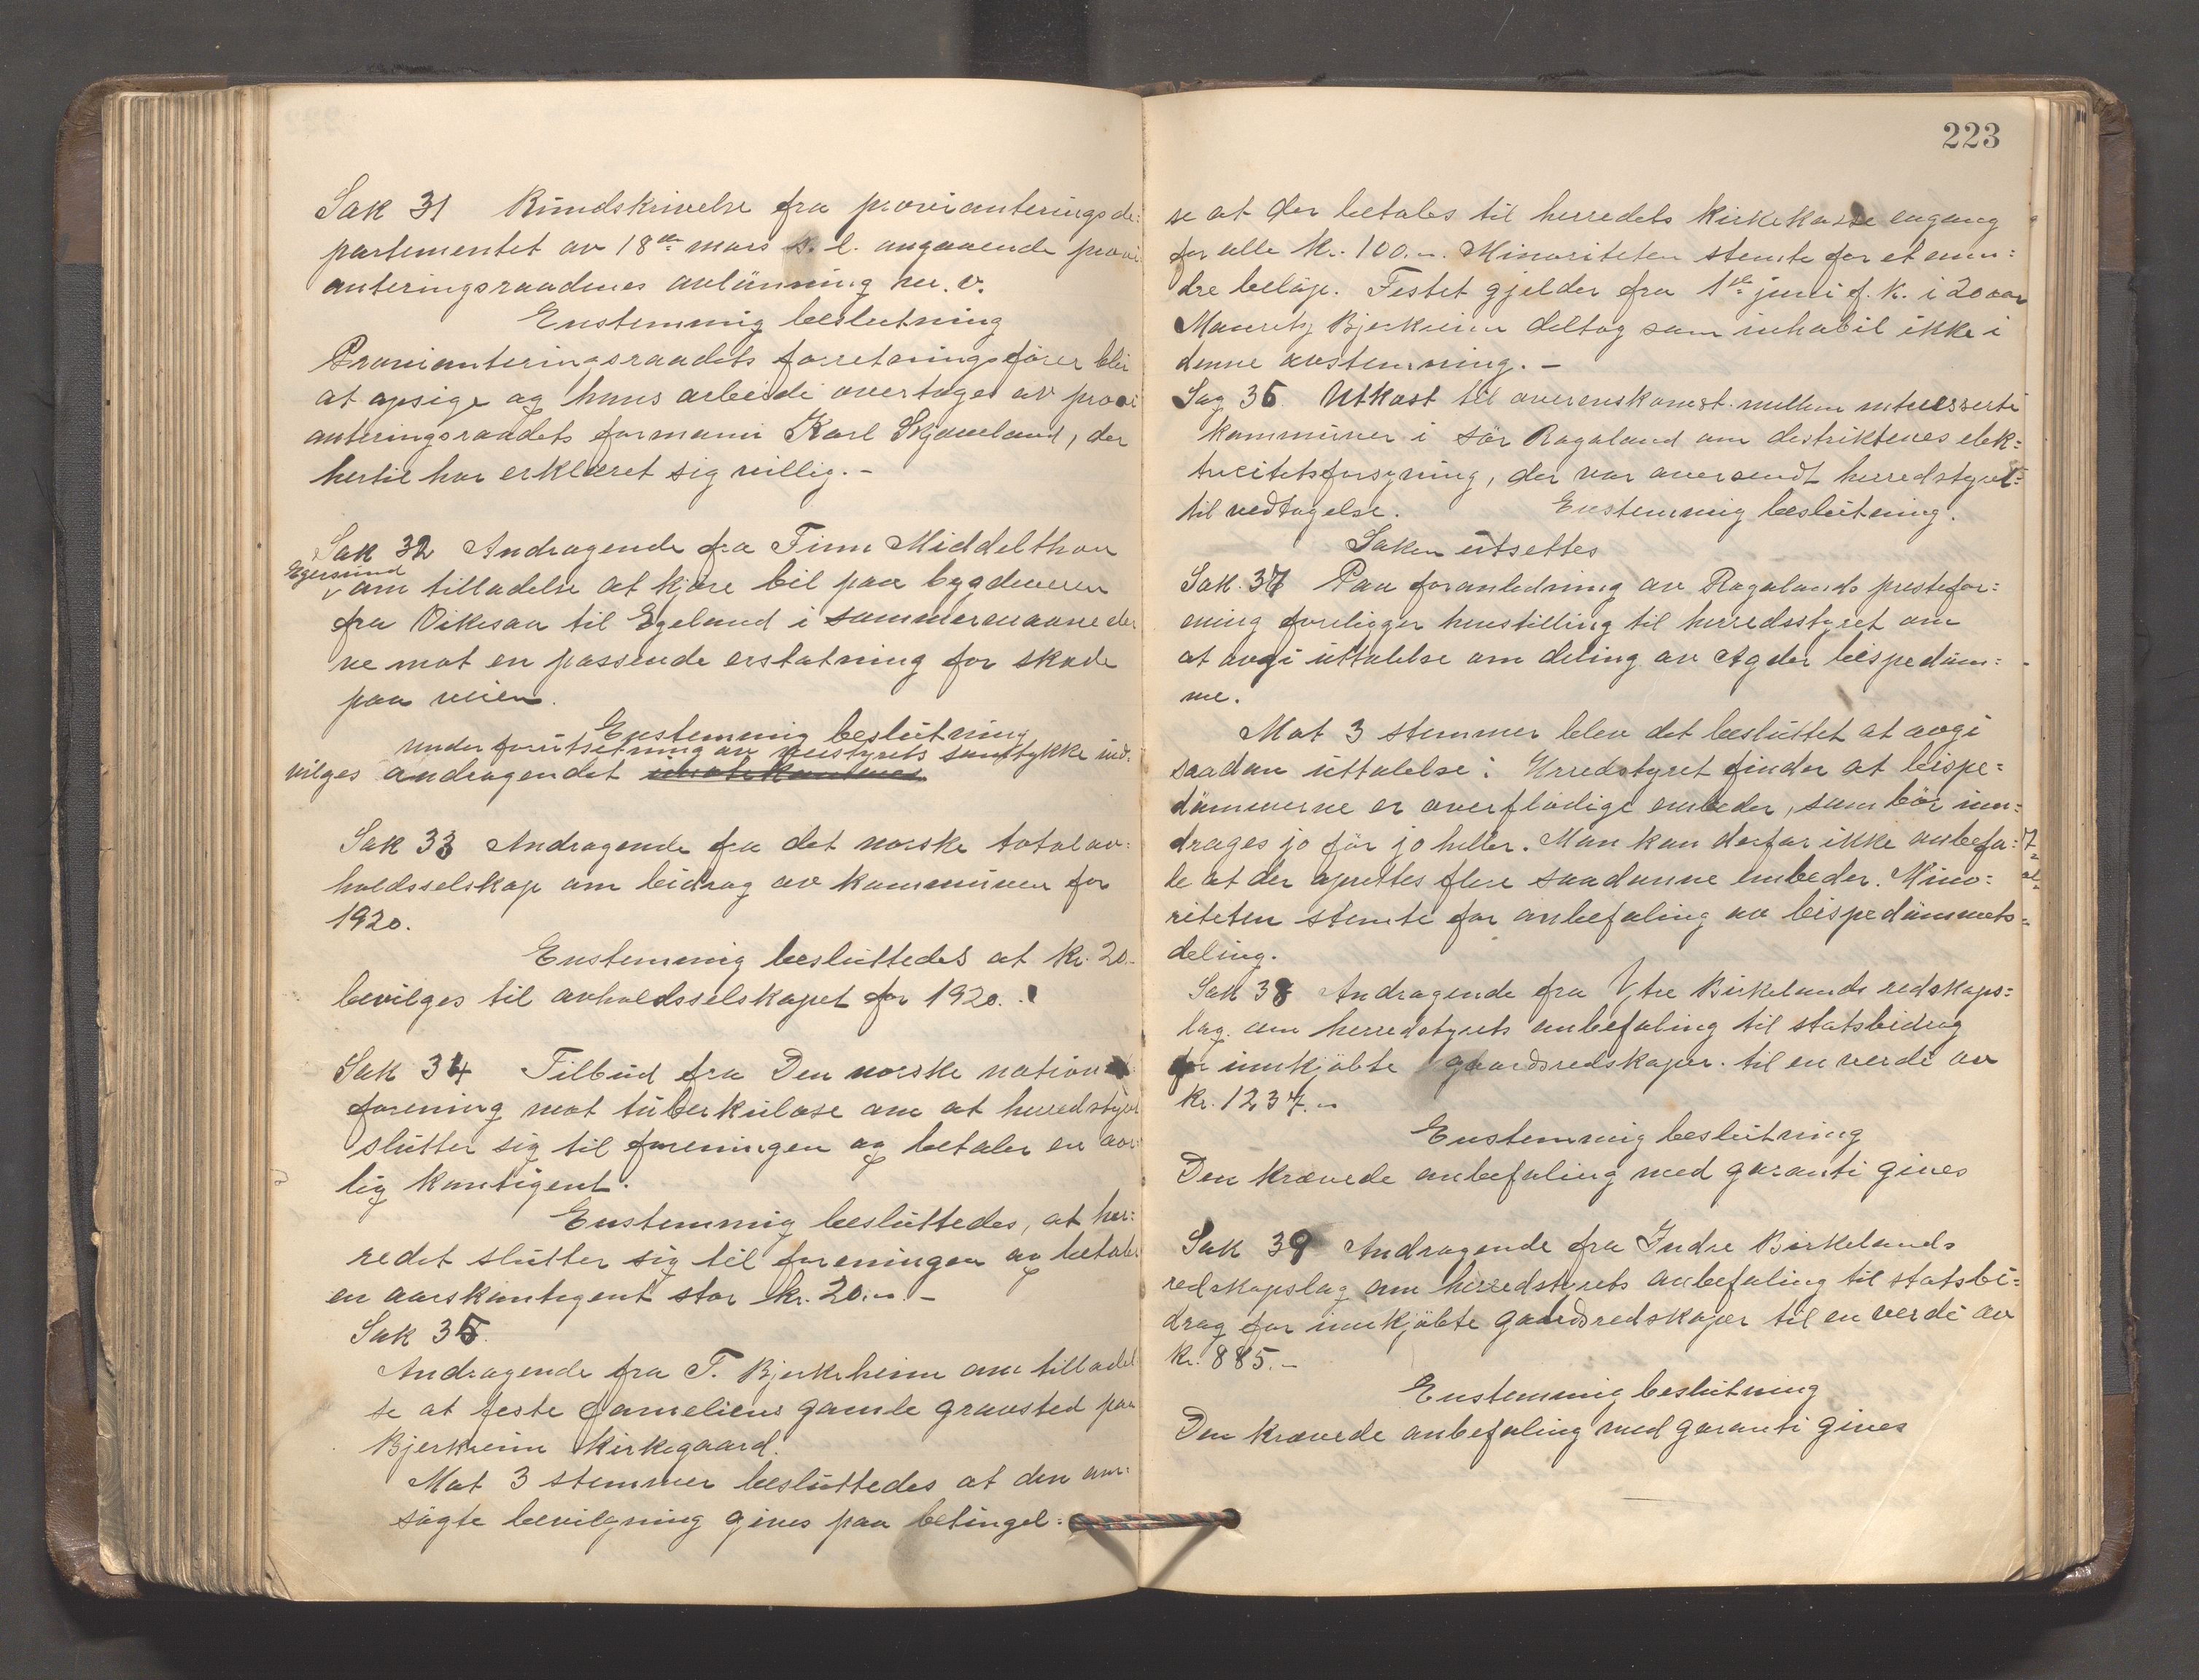 Sak 31 Rundskrivelse fra provianteringsde:
partementet av 18de mars s. l. angaaende provi
anteringsraadenes avlönning m. v.
Enstemmig beslutning
Provianteringsraadets forretningsförer blir
at opsige og hans arbeide overtages av provi
anteringsraadets formann Karl Skjæveland, der
hertil har erklæret sig villig. -
Sak 32 Andragende fra Finn Middelthon
Egersund
om tilladelse at kjøre bil paa bygdeveien
fra Vikesaa til Egeland i sommermaaneder
ne mot en passende erstatning for skade
paa veien.
Enstemmig beslutning
under forutsetning av veistyrets samtykke ind:
vilges andragendet
Sak 33 Andragende fra det norske totalav:
holdsselskap om bidrag av kommunen for
1920.
Enstemmig besluttedes at kr. 20.-
bevilges til avholdsselskapet for 1920.
Sak 34 Tilbud fra Den norske national
forening mot tuberkulose om at herredstyret
slutter sig til foreningen og betaler en aar
lig kontigent.
Enstemmig besluttedes, at her:
redet slutter sig til foreningen og betaler
en aarskontigent stor kr. 20.- -
Sak 35.
Andragende fra T. Bjerkheim om tilladel
se at feste fameliens gamle gravsted paa
Bjerkreim kirkegaard.
Mot 3 stemmer besluttedes at den an:
søgte bevilgning gives paa betingel:
223
se at der betales til herredets kirkekasse engang
for alle kr. 100.-. Minoriteten stemte for et min:
dre beløp. Festet gjelder fra 1ste juni f. k. i 20 aar
Mauritz Bjerkreim deltog som inhabil ikke i
denne avstemning. -
Sag 36 Utkast til overenskomst mellem interesserte
kommuner i sör Rogaland om destriktenes elek:
tricitetsforsyning, der var oversendt herredstyret
til vedtagelse. Enstemmig beslutning.
Saken utsettes
Sak. 37 Paa foranledning av Rogalands prestefor:
ening foreligger henstilling til herredsstyret om
at avgi uttalelse om deling av Agder bispedöm:
me.
Mot 3 stemmer blev det besluttet at avgi
saadan uttalelse: Herredstyret finder at bispe=
dömmerne er overflödige embeder, som bör inn:
drages jo för jo heller. Man kan derfor ikke anbefa:
le at der oprettes flere saadanne embeder. Mino:
riteten stemte for anbefaling av bispedömmets
deling.
Sak 38 Andragende fra Ytre Birkelands redskaps=
lag om herredstyrets anbefaling til statsbidrag
for innkjöbte gaardsredskaper til en verdi av
kr. 1237.-
Enstemmig beslutning
Den krævede anbefaling med garanti gives
Sak 39 Andragende fra Indre Birkelands
redskapslag om herredstyrets anbefaling til statsbi=
drag for innkjöbte gaardsredskaper til en verdi av
kr. 885.-
Enstemmig beslutning
Den krævede anbefaling med garanti gives